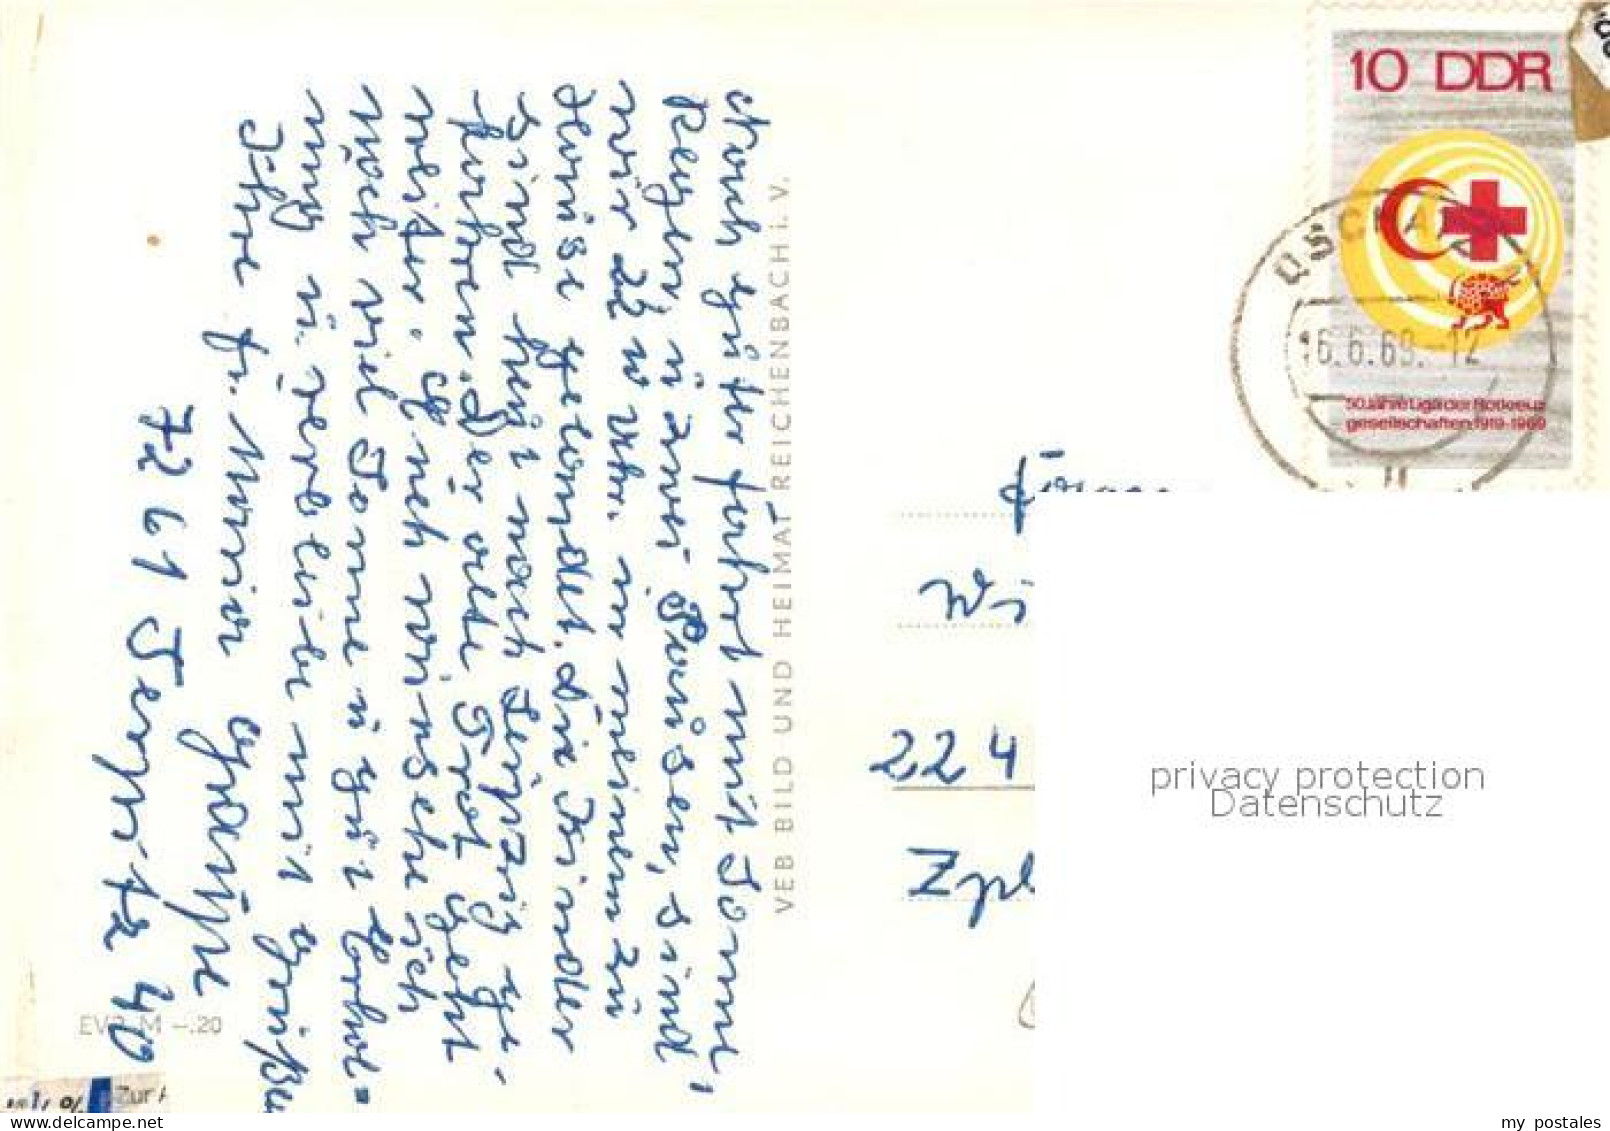 Nach guter Fahrt mit Sonne,
Regen, u. zwei Pausen, sind
wir 22 Uhr in meinem zu
Hause gelandet. Die Kinder
sind heut nach Leipzig ge-
fahren. Der alte Trot geht
weiter. Ihnen wünsche ich
noch viel Sonne u. gut Erhol=
ung u. verbleibe mit Grüßen
Ihre Fr. Maria
7261 Terpitz 40
VEB BILD UND HEIMAT REICHENBACH i. V.
EVP M –.20
10 DDR
50 Jahre Liga der Rotkreuz
gesellschaften 1919-1969
OSCHATZ
16.6.69.-12
Wi
224
privacy protection
Datenschutz
Zur
my postales